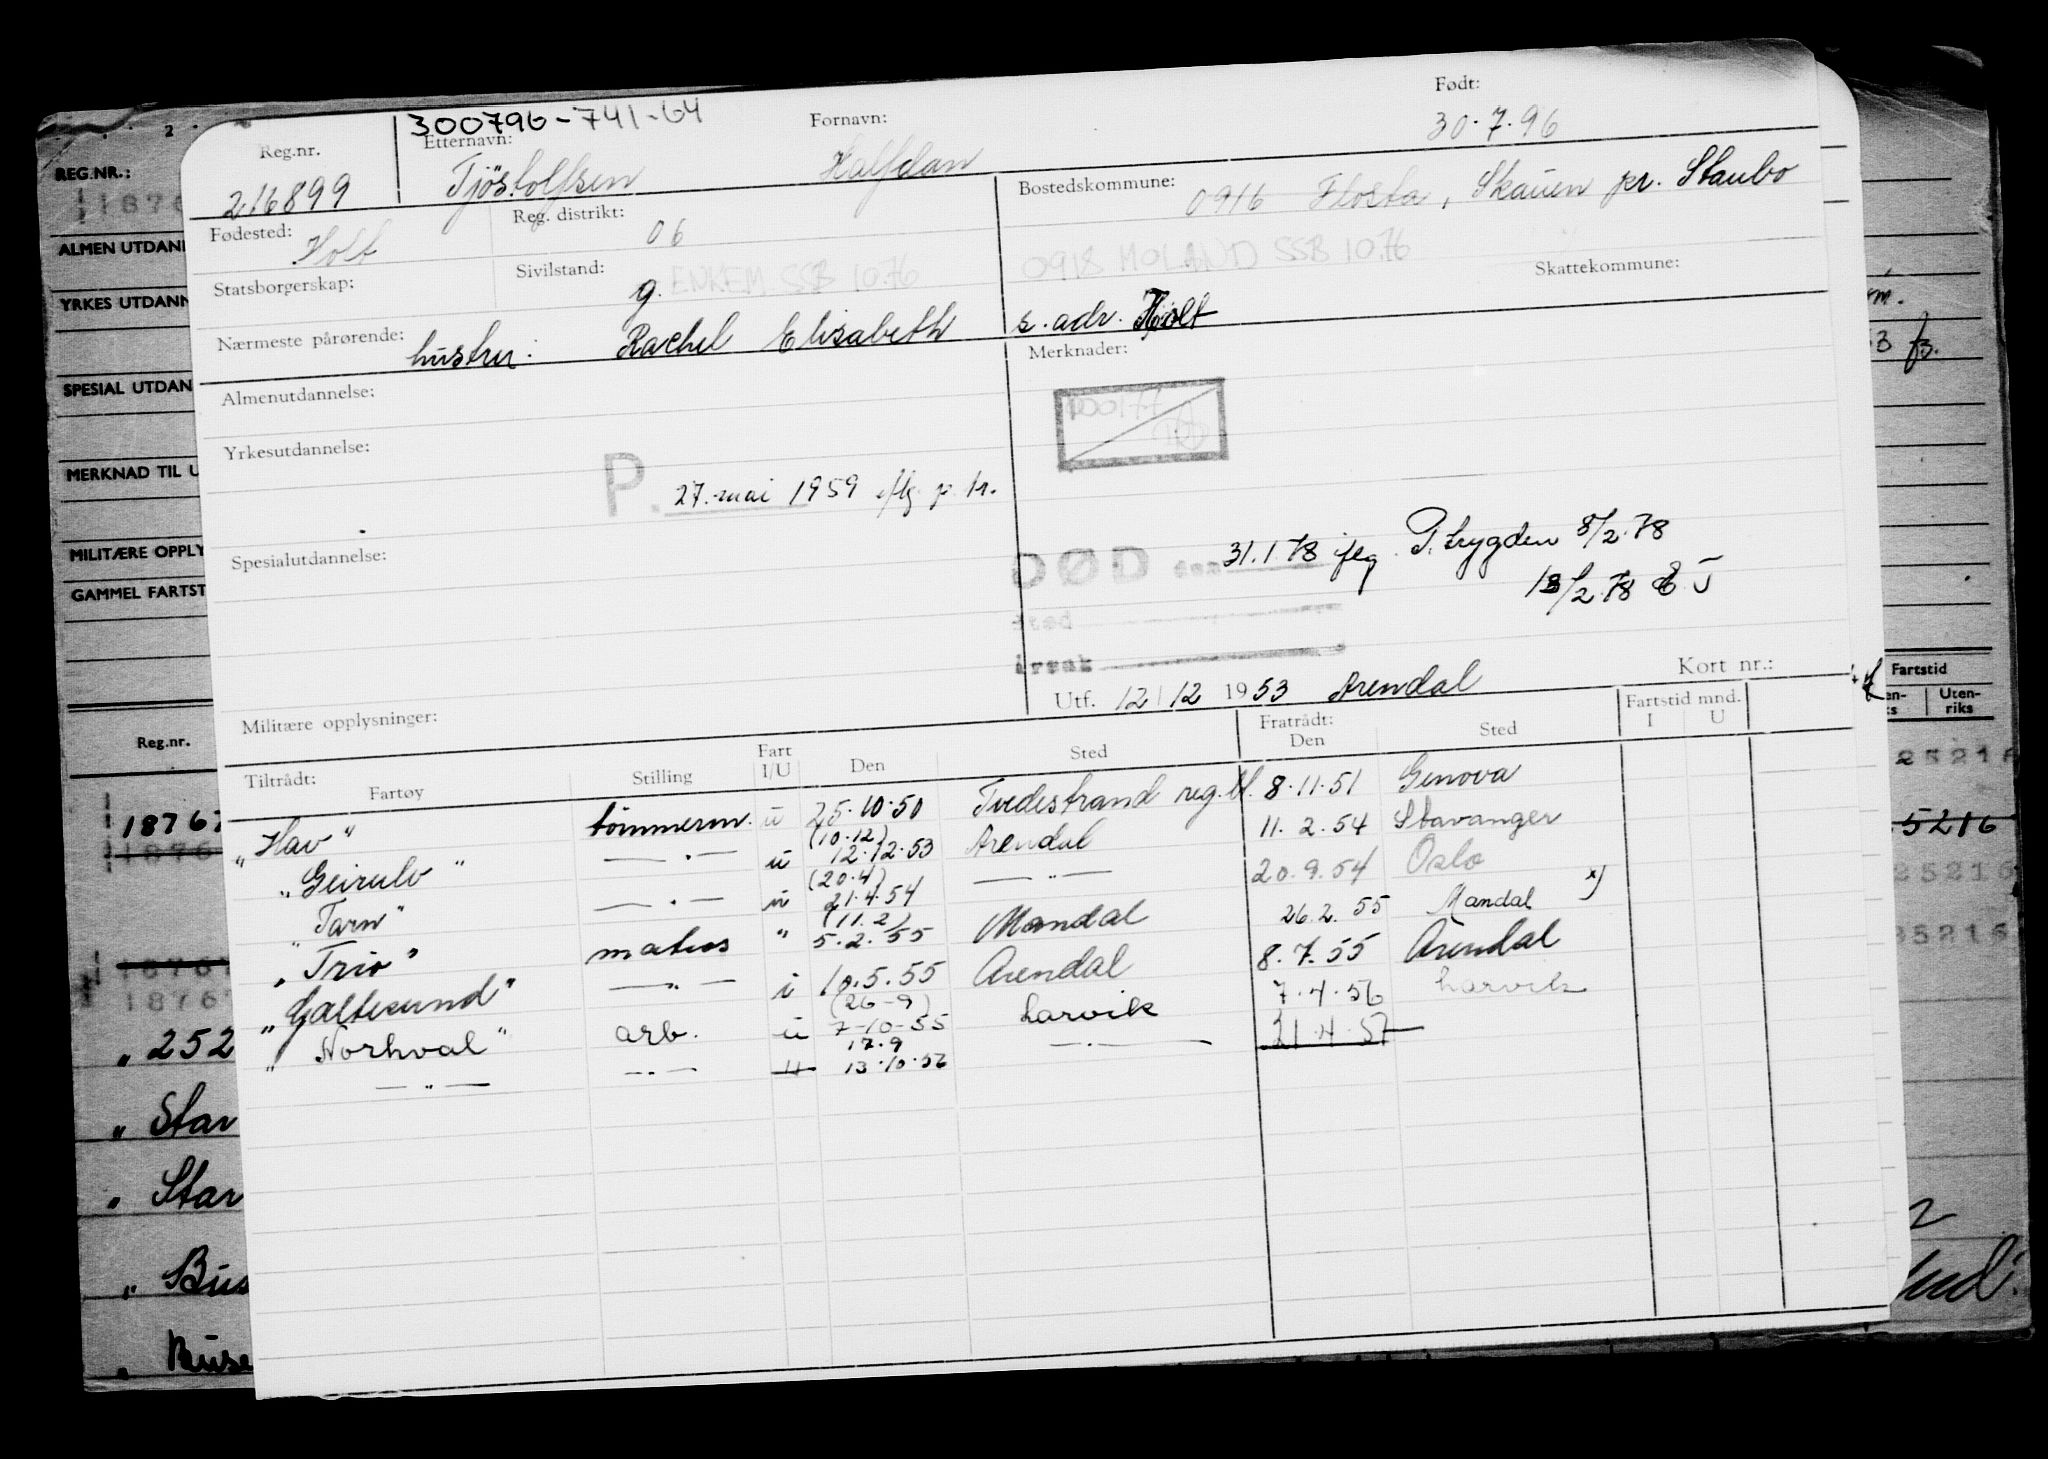 300796-741-64
Reg.nr. Etternavn: Fornavn: Født:
216899 Tjöstolfsen Halfdan 30.7.96
Fødested: Reg. distrikt: Bostedskommune:
Holt 06 0916 Flosta, Skauen pr. Staubo
Statsborgerskap: Sivilstand: Skattekommune:
g. ENKEM. SSB 10.76 0918 MOLAND SSB 10.76
Nærmeste pårørende:
hustru: Rachel Elisabeth s. adr. Holt
Almenutdannelse: Merknader:
Yrkesutdannelse:
P. 27. mai 1959
Spesialutdannelse:
DØD den 31.1.78 P. trygden 8/2.78
13/2.78
sted
årsak
Utf. 12/12 1953 Arendal Kort nr.:
Militære opplysninger:
Tiltrådt: Fratrådt: Fartstid mnd.
Fartøy Stilling Fart I/U Den Sted Den Sted I U
"Hav" tömmerm. u 25.10.50 Tvedestrand reg.bl. 8.11.51 Genova
"Geirulv" —"— u (10.12) 12.12.53 Arendal 11.2.54 Stavanger
"Tarn" —"— u (20.4) 21.4.54 —"— 20.9.54 Oslo
"Trio" matros " (11.2) 5.2.55 Mandal 26.2.55 Mandal x)
"Galtesund" —"— i 10.5.55 Arendal 8.7.55 Arendal
"Norhval" arb. u (26-9) 7-10-55 Larvik 7.4.56 Larvik
—"— —"— u 17.9 13.10.56 —"— 21.4.57
REG.NR.:
1876
ALMEN UTDAN
YRKES UTDANN
SPESIAL UTDAN
MERKNAD TIL U
MILITÆRE OPPLY
GAMMEL FARTST
Reg.nr.
18767
1876
18767
18767
" 252
" Star
" Star
" Bus
" Buse
Fartstid
Uten-
riks
25216
5216
25216
25216